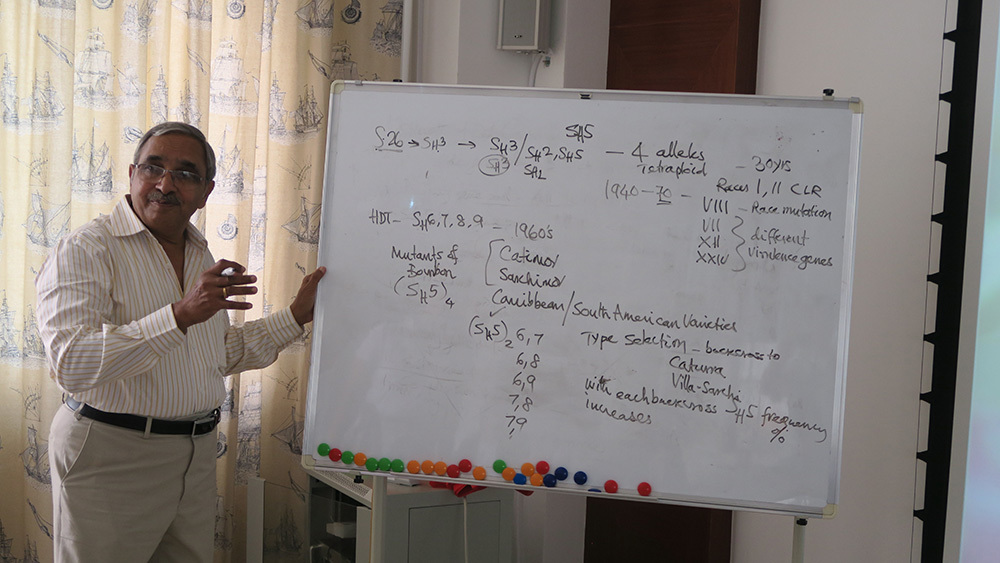 SH5
S.26 → SH3 → SH3/SH2, SH5 — 4 alleles
SH3 SH2 Tetraploid
— 30 yrs
1940 – 70 – Races I, II CLR
VIII – Race mutation
VII
XII different
XXIV virulence genes
HDT – SH6,7,8,9 – 1960's
Mutants of Bourbon
(SH5)4
Catimor
Sarchimor
Carribbean/South American Varieties
(SH5)2 6,7
6,8
6,9
7,8
79
Type Selection – backcross to
Caturra
Villa-Sarchi
with each backcross → H5 frequency
increases %